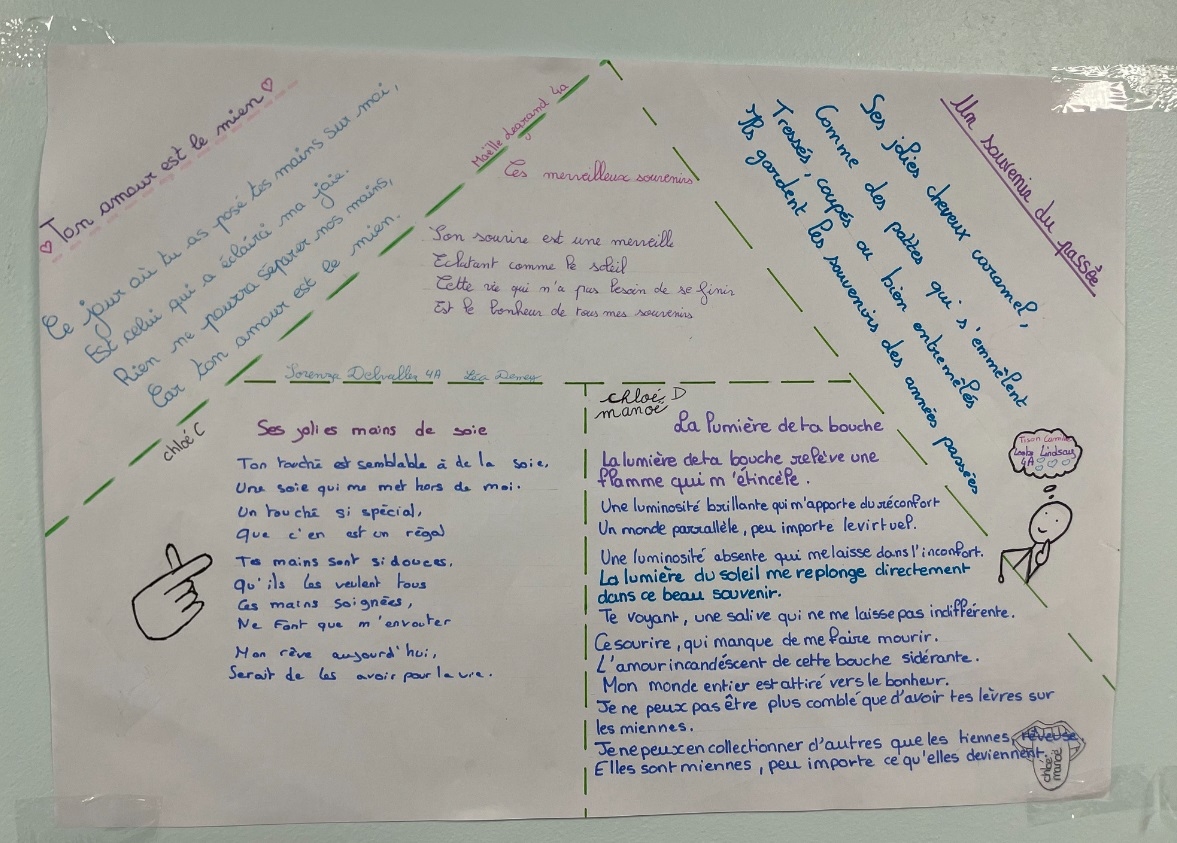 Ton amour est le mien
Ce jour où tu as posé tes mains sur moi,
Est celui qui a éclairci ma joie.
Rien ne pourra séparer nos mains,
Car ton amour est le mien.
chloé C
Maëlle Legrand 4a
Ces merveilleux souvenirs
Son sourire est une merveille
Eclatant comme le soleil
Cette vie qui n'a pas besoin de se finir
Est le bonheur de tous mes souvenirs
Lorenza Delvallez 4A Léa Demey
Un souvenir du passée
Ses jolies cheveux caramel,
Comme des pattes qui s'emmêlent
Tressés, coupés ou bien entremêlés
Ils gardent les souvenirs des années passées
Tison Camille
Looby Lindsay
4A
Ses jolies mains de soie
Ton touché est semblable à de la soie,
Une soie qui me met hors de moi.
Un touché si spécial,
Que c'en est un régal
Tes mains sont si douces,
qu'ils les veulent tous
Ces mains soignées,
Ne Font que m'envouter
Mon rêve aujourd'hui,
Serait de les avoir pour la vie.
chloé D
manoé
La lumière de ta bouche
La lumière de ta bouche relève une
flamme qui m'étincèle.
Une luminosité brillante qui m'apporte du réconfort
Un monde parrallèle, peu importe le virtuel.
Une luminosité absente qui me laisse dans l'inconfort.
La lumière du soleil me replonge directement
dans ce beau souvenir.
Te voyant, une salive qui ne me laisse pas indifférente.
Ce sourire, qui manque de me faire mourir.
L'amour incandéscent de cette bouche sidérante.
Mon monde entier est attiré vers le bonheur.
Je ne peux pas être plus comblé que d'avoir tes lèvres sur
les miennes.
Je ne peux en collectionner d'autres que les tiennes, rêveuse
Elles sont miennes, peu importe ce qu'elles deviennent.
chloé
manoé